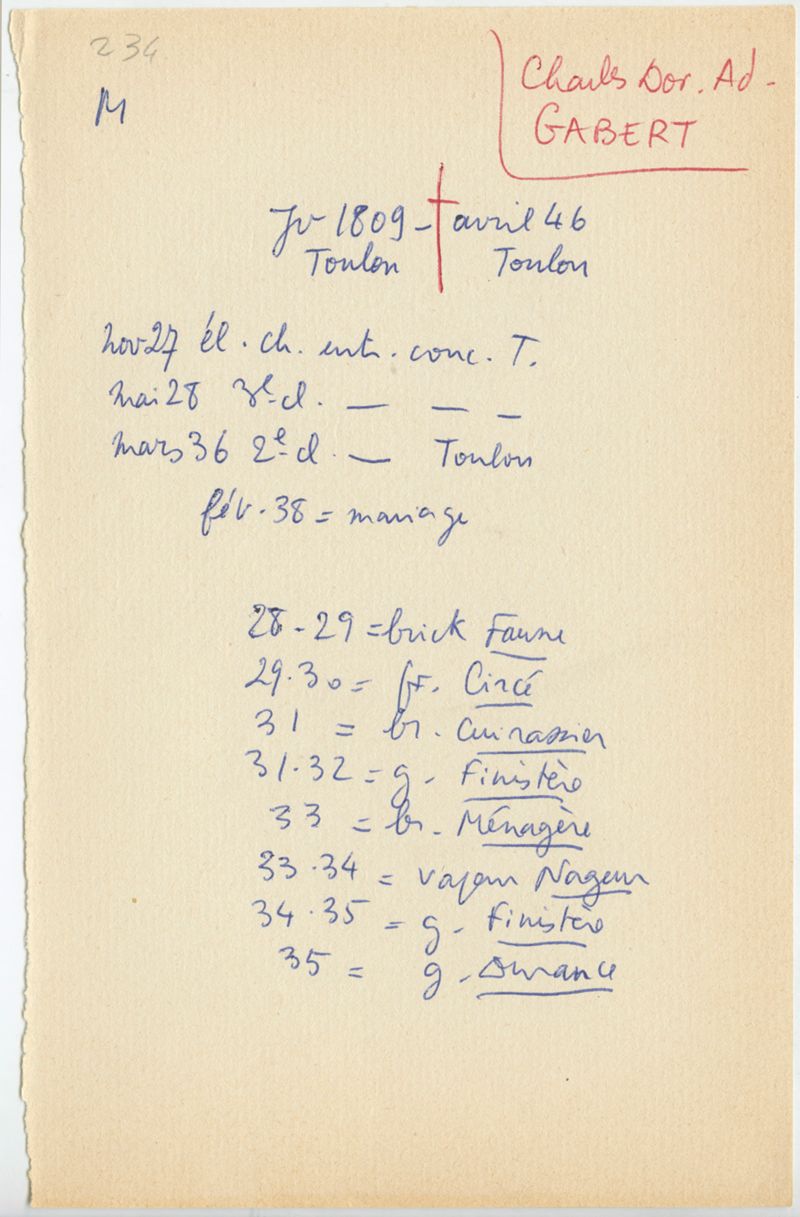 234
M
Charles Dor. Ad-
GABERT
Jv 1809 - † avril 46
Toulon Toulon
nov 27 él. ch. ent. conc. T.
mai 28 3e cl. — — —
mars 36 2e cl. — Toulon
fév. 38 = mariage
28-29 = brick Faune
29.30 = fr. Circé
31 = br. Cuirassier
31.32 = g. Finistère
33 = br. Ménagère
33.34 = vapeur Nageur
34.35 = g. Finistère
35 = g. Durance